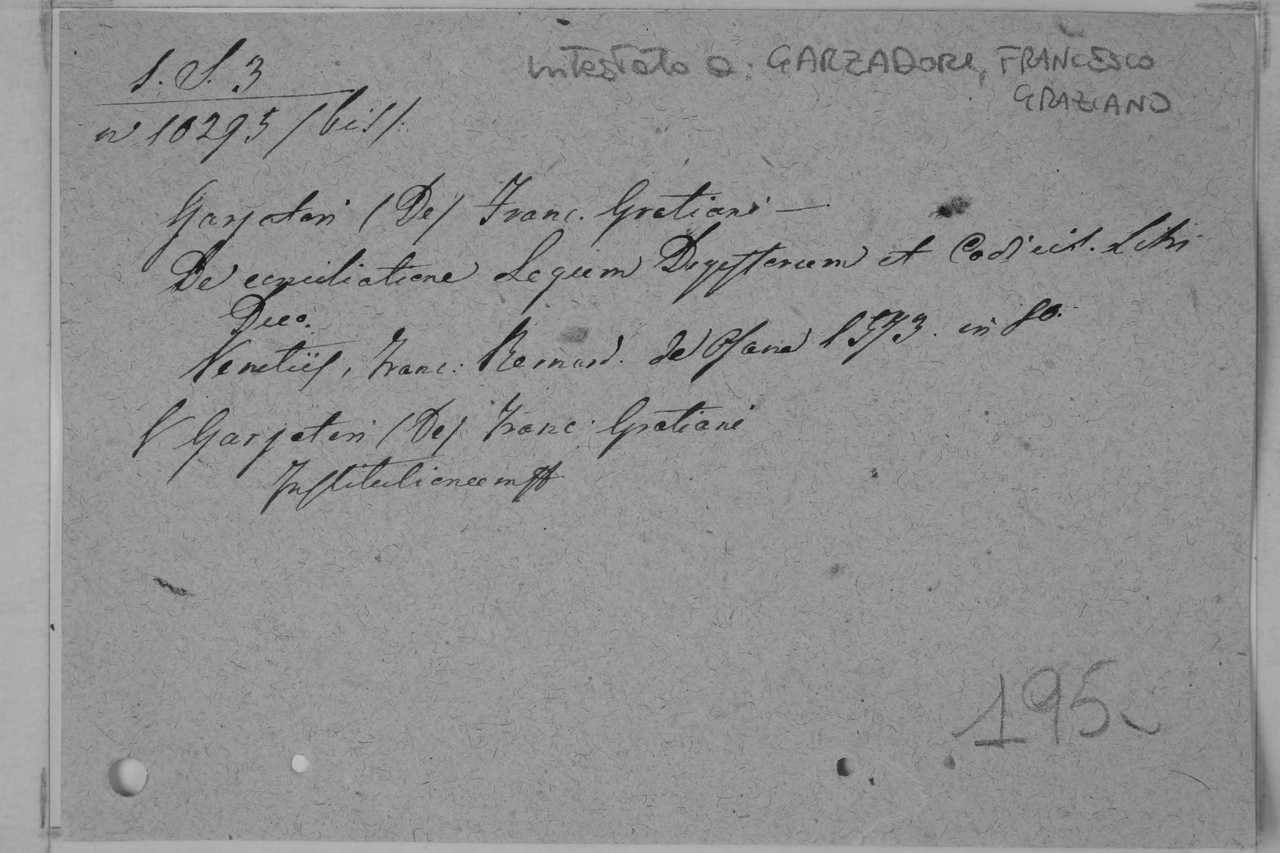 1. S. 3
intestato a: GARZADORI, FRANCESCO
GRAZIANO
n° 10295 /bis/.
Garzatori (De) Franc. Gratiani —
De conciliatione Legum Digestorum et Codicis. Libri
Duo.
Venetiis, Franc. Bernard. de Osana 1573. in 8o.
V Garzatori (De) Franc. Gratiani
195